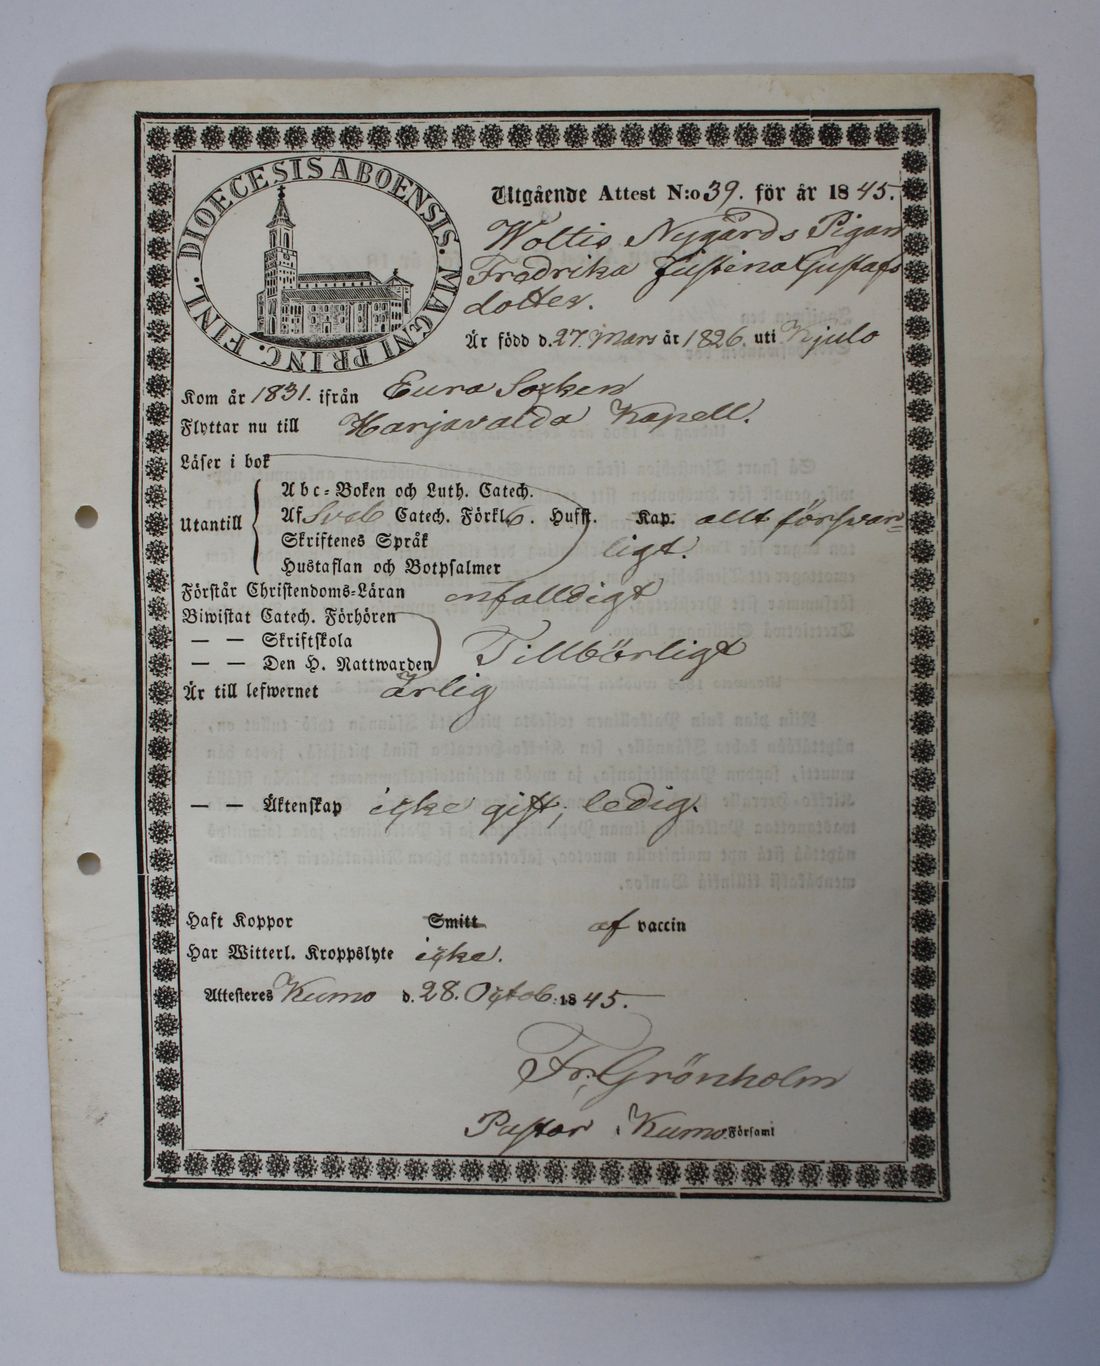 DIOECESIS ABOENSIS. MAGNI PRINC. FINL.
Utgående Attest N:o 39. för år 1845.
Woltis Nygårds Pigan
Fredrika Justina Gustafs
dotter.
Är född d. 27. Mars år 1826. uti Kjulo
Kom år 1831. ifrån Eura Socken
Flyttar nu till Harjavalda Kapell.
Läser i bok
Utantill
Abc-Boken och Luth. Catech.
Af Sveb Catech. Förkl. Husst. Kap. allt försvar=
Skriftenes Språk ligt.
Hustaflan och Botpsalmer
Förstår Christendoms-Läran enfaldigt
Biwistat Catech. Förhören
— — Skriftskola Tillbörligt
— — Den H. Nattwarden
Är till lefwernet ärlig
— — Äktenskap icke gift, ledig.
Haft Koppor Smitt af vaccin
Har Witterl. Kroppslyte icke.
Attesteres Kumo d. 28. Octob: 1845.
Fr. Grönholm
Pastor i Kumo Församl